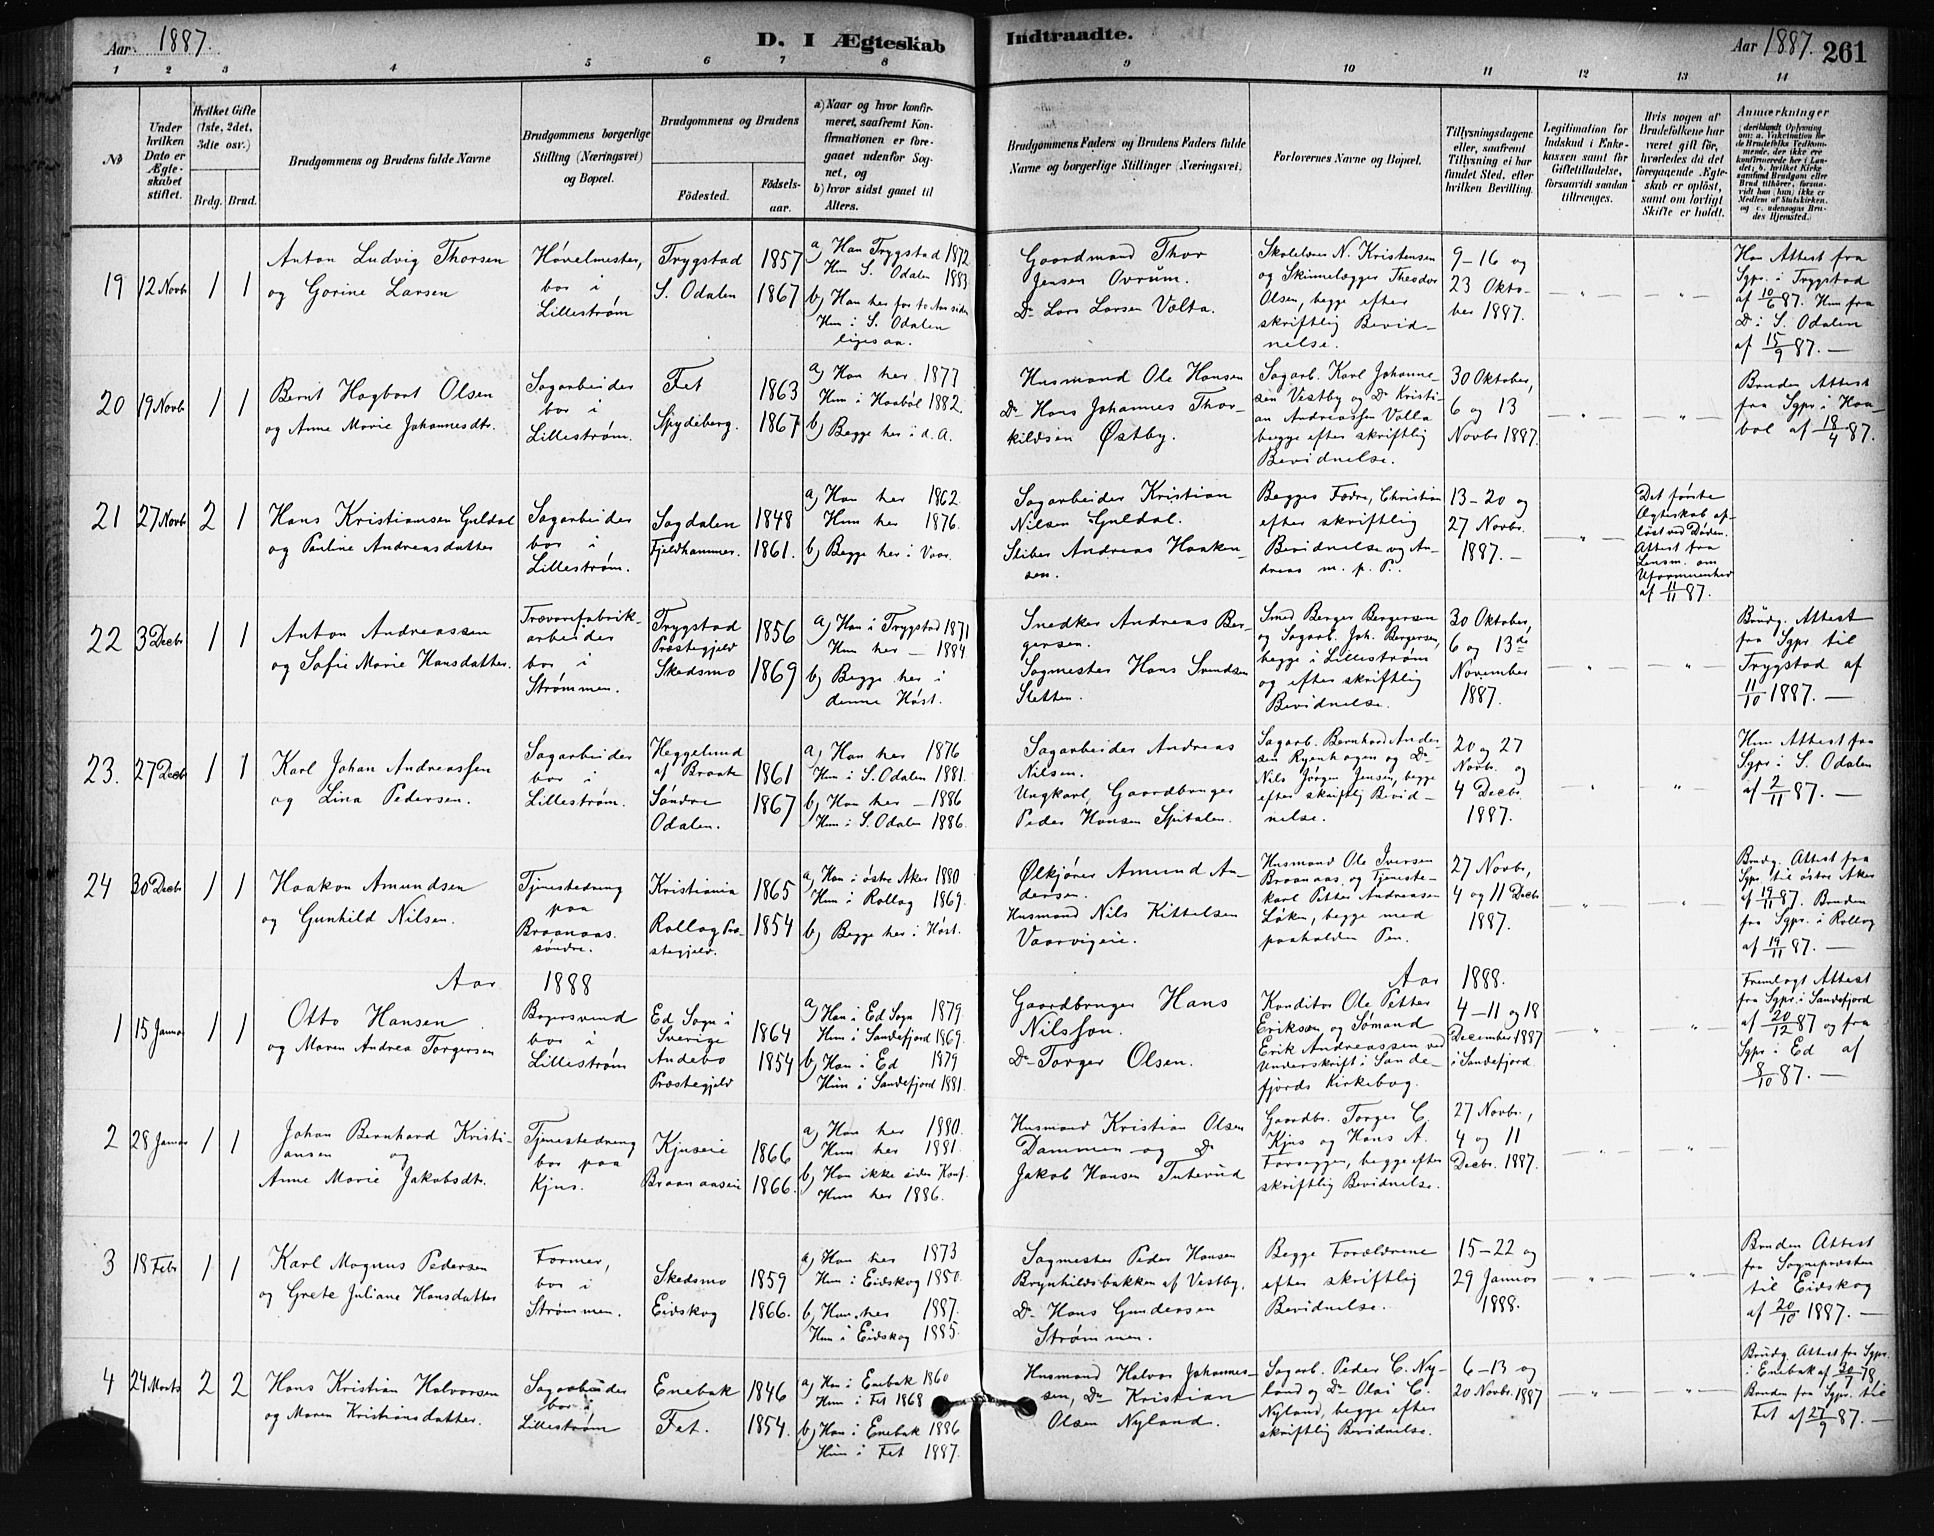 Aar 1887. D. I Ægteskab Indtraadte. Aar 1887. 261
1 2 3 4 5 6 7 8 9 10 11 12 13 14
No
Under hvilken Dato er Ægteskabet stiftet.
Hvilket Gifte (1ste, 2det, 3die osv.)
Brdg. Brud.
Brudgommens og Brudens fulde Navne
Brudgommens borgerlige Stilling (Næringsvei) og Bopæl.
Brudgommens og Brudens
Fødested. Fødselsaar.
a) Naar og hvor konfirmeret, saafremt Konfirmationen er foregaaet udenfor Sognet, og
b) hvor sidst gaaet til Alters.
Brudgommens Faders og Brudens Faders fulde Navne og borgerlige Stillinger (Næringsvei).
Forlovernes Navne og Bopæl.
Tillysningsdagene eller, saafremt Tillysning ei har fundet Sted, efter hvilken Bevilling.
Legitimation for Indskud i Enkekassen samt for Giftetilladelse, forsaavidt saadan tiltrænges.
Hvis nogen af Brudefolkene har været gift før, hvorledes da det foregaaende Ægteskab er opløst, samt om lovligt Skifte er holdt.
Anmærkninger
(deriblandt Oplysning om: a. Vakcination for de Brudefolks Vedkommende, der ikke ere konfirmerede her i Landet; b. hvilket Kirkesamfund Brudgom eller Brud tilhører, forsaavidt han (hun) ikke er Medlem af Statskirken, og c. udensogns Brudes Hjemsted.)
19 12 Novbr 1 1
Anton Ludvig Thorsen
og Gorine Larsen
Høvelmester,
bor i
Lillestrøm
Trygstad 1857
S. Odalen 1867
a) Han Trygstad 1872
Hun S. Odalen 1883
b) Han her for to Aar siden
Hun i S. Odalen
ligesaa.
Gaardmand Thor
Jensen Ovrum.
Do Lars Larsen Volta.
Skolelærer N. Kristensen
og Skinnelægger Theodor
Olsen, begge efter
skriftlig Bevid-
nelse.
9-16 og
23 Okto-
ber 1887.
Han Attest fra
Sgpr. i Trygstad
af 10/6 87. Hun fra
Do i S. Odalen
af 15/9 87. —
20 19 Novbr 1 1
Bernt Hagbart Olsen
og Anne Marie Johannesdtr.
Sagarbeider
bor i
Lillestrøm.
Fet 1863
Spydeberg. 1867
a) Han her 1877
Hun i Haabøl 1882.
b) Begge her i d. A.
Husmand Ole Hansen
Do Hans Johannes Thor-
kildsen Østby.
Sagarb. Karl Johanne-
sen Vestby og Do Kristi-
an Andreassen Volla
begge efter skriftlig
Bevidnelse.
30 Oktober,
6 og 13
Novbr 1887.
Bruden Attest
fra Sgpr. i Haa-
bøl af 18/4 87.
21 27 Novbr 2 1
Hans Kristiansen Guldal
og Pauline Andreasdatter
Sagarbeider
bor i
Lillestrøm.
Sagdalen 1848
Fjeldhammer. 1861.
a) Han her 1862.
Hun her 1876.
b) Begge her i Vaar.
Sagarbeider Kristian
Nilsen Guldal.
Sliber Andreas Haaken-
sen.
Begges Fædre, Christian
efter skriftlig
Bevidnelse og An-
dreas m. p. P.
13-20 og
27 Novbr.
1887. —
Det første
Ægteskab op-
løst ved Døden.
Attest fra
Lensm. om
Uformuenhed
af 11/11 87.
22 3 Decbr 1 1
Anton Andreassen
og Sofie Marie Hansdatter.
Trævarefabrik-
arbeider
bor i
Strømmen.
Trygstad
Præstegjeld 1856
Skedsmo 1869
a) Han i Trygstad 1871
Hun her — 1884
b) Begge her i
denne Høst.
Snedker Andreas Ber-
gersen.
Sagmester Hans Svendsen
Sletten.
Smed Berger Bergersen
og Sagarb. Joh. Bergersen,
begge i Lillestrøm
og efter skriftlig
Bevidnelse.
30 Oktober,
6 og 13de
November
1887.
Brudg. Attest
fra Sgpr til
Trygstad af
11/10 1887. —
23. 27 Decbr 1 1
Karl Johan Andreassen
og Lina Pedersen.
Sagarbeider
bor i
Lillestrøm.
Heggelund
af Braate 1861
Søndre 1867
Odalen.
a) Han her 1876
Hun i S. Odalen 1881.
b) Han her — 1886
Hun i S. Odalen 1886.
Sagarbeider Andreas
Nilsen.
Ungkarl, Gaardbruger
Peder Hansen Spitalen.
Sagarb. Bernhard Ander-
sen Ryenhagen og Do
Nils Jørgen Jensen, begge
efter skriftlig Bevid-
nelse.
20 og 27
Novbr. og
4 Decbr.
1887.
Hun Attest fra
Sgpr i S. Odalen
af 2/11 87. —
24 30 Decbr 1 1
Haakon Amundsen
og Gunhild Nilsen.
Tjenestedreng
paa
Braanaas
søndre.
Kristiania 1865
Rollag Præ- 1854
stegjeld.
a) Han i østre Aker 1880
Hun i Rollag 1869.
b) Begge her i Høst.
Ølkjører Amund An-
dersen.
Husmand Nils Kittelsen
Vaarvigeie.
Husmand Ole Iversen
Braanaas og Tjeneste-
karl Petter Andreasen
Løken, begge med
paaholden Pen.
27 Novbr,
4 og 11 Decbr
1887.
Brudg. Attest fra
Sgpr. til østre Aker
af 19/11 87. Bruden
fra Sgpr. i Rollag
af 19/11 87. —
Aar 1888 Aar 1888.
1 15 Januar 1 1
Otto Hansen
og Maren Andrea Torgersen
Bagersvend
bor i
Lillestrøm
Ed Sogn i
Sverige 1864
Andebo 1854
Præstegjeld
a) Han i Ed Sogn 1879
Hun i Sandefjord 1869.
b) Han i Ed 1879
Hun i Sandefjord 1881.
Gaardbruger Hans
Nilsson.
Do Torger Olsen.
Konditor Ole Petter
Eriksen og Sømand
Erik Andreassen ved
Underskrift i Sande-
fjords Kirkebog.
4-11 og 18
December 1887
i Sandefjord.
Fremlagt Attest
fra Sgpr. i Sandefjord
af 20/12 87 og fra
Sgpr i Ed af
8/10 87. —
2 28 Januar 1 1
Johan Bernhard Kristi-
ansen og
Anne Marie Jakobsdtr.
Tjenestedreng
bor paa
Kjus.
Kjuseie 1866
Braanaasen 1866.
a) Han her 1880.
Hun her 1881.
b) Han ikke siden Konf.
Hun her 1886.
Husmand Kristian Olsen
Dammen og Do
Jakob Hansen Tuterud
Gaardbr. Torger C.
Kjus og Hans A.
Farseggen, begge efter
skriftlig Bevidnelse.
27 Novbr,
4 og 11
Decbr. 1887.
3 18 Febr 1 1
Karl Magnus Pedersen
og Grete Juliane Hansdatter
Former,
bor i
Strømmen.
Skedsmo 1859
Eidskog 1866.
a) Han her 1873
Hun i Eidskog 1880.
b) Han her 1887.
Hun i Eidskog 1885.
Sagmester Peder Hansen
Brynhildsbakken af Vestby.
Do Hans Gundersen
Strømmen.
Begge Forældrene
efter skriftlig
Bevidnelse.
15-22 og
29 Januar
1888.
Bruden Attest
fra Sognepræsten
til Eidskog
af 20/10 1887. —
4 24 Marts 2 2
Hans Kristian Halvorsen
og Maren Kristiansdatter.
Sagarbeider
bor i
Lillestrøm
Enebak 1846
Fet. 1854.
a) Han i Enebak 1860
Hun i Fet 1868
b) Han i Enebak 1886
Hun i Fet 1887.
Husmand Halvor Johannes-
sen, Do Kristian
Olsen Nyland.
Sagarb. Peder C. Ny-
land og Do Olai C.
Nyland, begge efter
skriftlig Bevidnelse.
6-13 og
20 Novbr. 1887
Brudg Attest fra Sgpr.
i Enebak af 30/7 78
Bruden fra Sgpr. til
Fet af 27/9 87. —